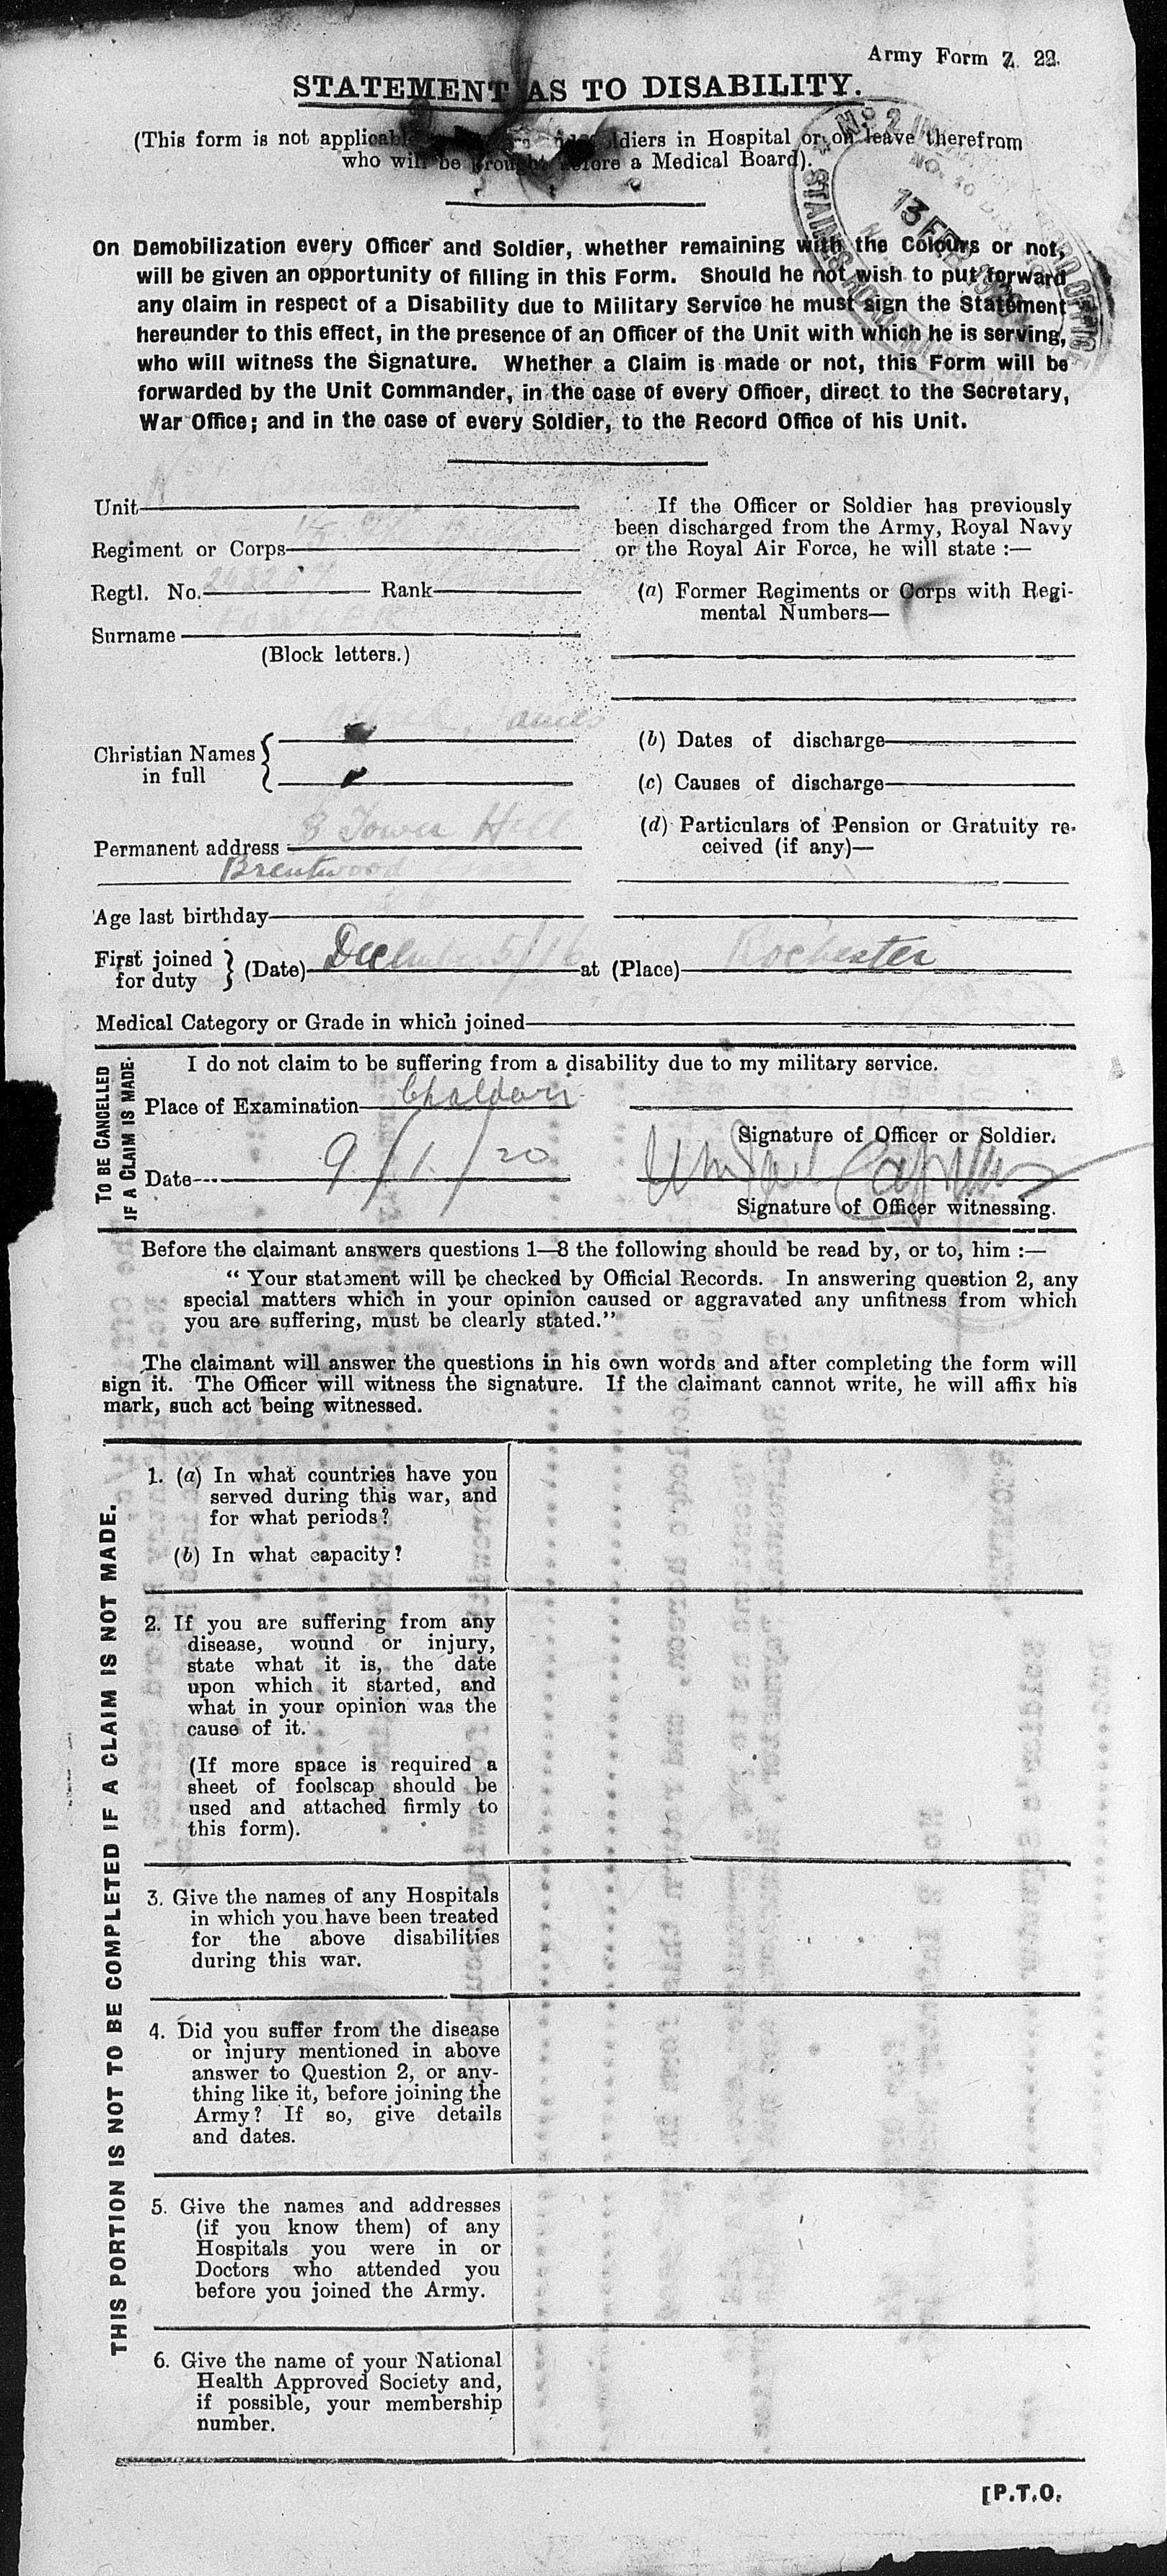 Army Form Z. 22.
STATEMENT AS TO DISABILITY.
(This form is not applicable soldiers in Hospital or on leave therefrom
who will be brought before a Medical Board).
No 2 INFANTRY RECORD OFFICE
STAINES ROAD HOUNSLOW
13 FEB
On Demobilization every Officer and Soldier, whether remaining with the Colours or not,
will be given an opportunity of filling in this Form. Should he not wish to put forward
any claim in respect of a Disability due to Military Service he must sign the Statement
hereunder to this effect, in the presence of an Officer of the Unit with which he is serving,
who will witness the Signature. Whether a Claim is made or not, this Form will be
forwarded by the Unit Commander, in the case of every Officer, direct to the Secretary,
War Office; and in the case of every Soldier, to the Record Office of his Unit.
Unit
Regiment or Corps
Regtl. No. Rank
Surname
(Block letters.)
Christian Names in full James
Permanent address 8 Tower Hill
Brentwood
Age last birthday
If the Officer or Soldier has previously
been discharged from the Army, Royal Navy
or the Royal Air Force, he will state :—
(a) Former Regiments or Corps with Regi-
mental Numbers—
(b) Dates of discharge
(c) Causes of discharge
(d) Particulars of Pension or Gratuity re-
ceived (if any)—
First joined for duty (Date) December 5/16 at (Place) Rochester
Medical Category or Grade in which joined
TO BE CANCELLED
IF A CLAIM IS MADE.
I do not claim to be suffering from a disability due to my military service.
Place of Examination
Signature of Officer or Soldier.
Date 9/1/20
Signature of Officer witnessing.
Before the claimant answers questions 1—8 the following should be read by, or to, him :—
“ Your statement will be checked by Official Records. In answering question 2, any
special matters which in your opinion caused or aggravated any unfitness from which
you are suffering, must be clearly stated.”
The claimant will answer the questions in his own words and after completing the form will
sign it. The Officer will witness the signature. If the claimant cannot write, he will affix his
mark, such act being witnessed.
THIS PORTION IS NOT TO BE COMPLETED IF A CLAIM IS NOT MADE.
1. (a) In what countries have you
served during this war, and
for what periods?
(b) In what capacity?
2. If you are suffering from any
disease, wound or injury,
state what it is, the date
upon which it started, and
what in your opinion was the
cause of it.
(If more space is required a
sheet of foolscap should be
used and attached firmly to
this form).
3. Give the names of any Hospitals
in which you have been treated
for the above disabilities
during this war.
4. Did you suffer from the disease
or injury mentioned in above
answer to Question 2, or any-
thing like it, before joining the
Army? If so, give details
and dates.
5. Give the names and addresses
(if you know them) of any
Hospitals you were in or
Doctors who attended you
before you joined the Army.
6. Give the name of your National
Health Approved Society and,
if possible, your membership
number.
[P.T.O.